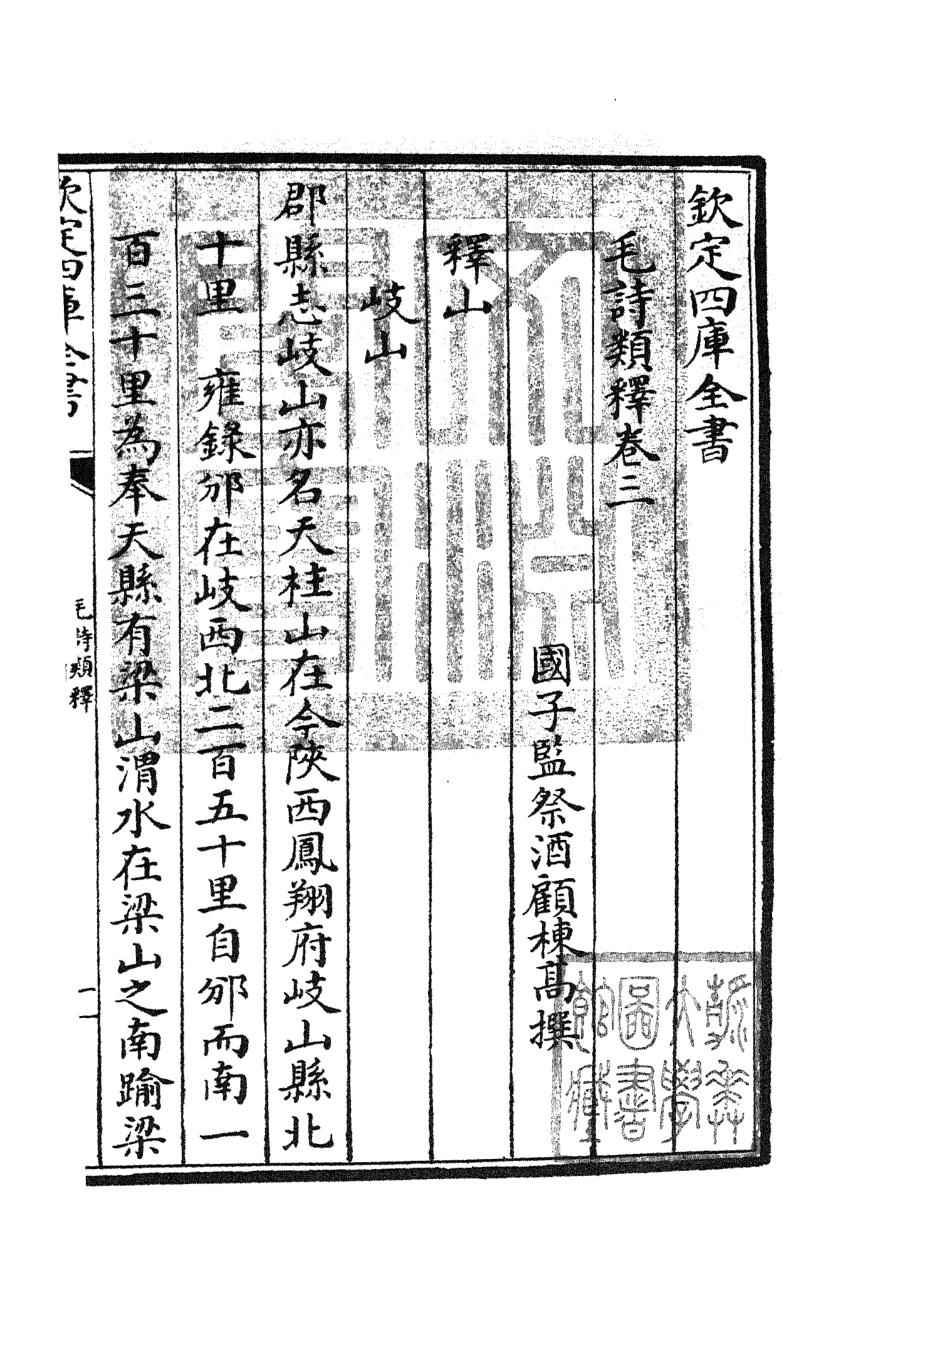 欽定四庫全書
毛詩類釋卷三
國子監祭酒顧棟高撰
釋山
岐山
郡縣志岐山亦名天柱山在今陜西鳳翔府岐山縣北
十里　雍錄邠在岐西北二百五十里自邠而南一
百三十里為奉天縣有梁山渭水在梁山之南踰梁
欽定四庫全書
毛詩類釋
一